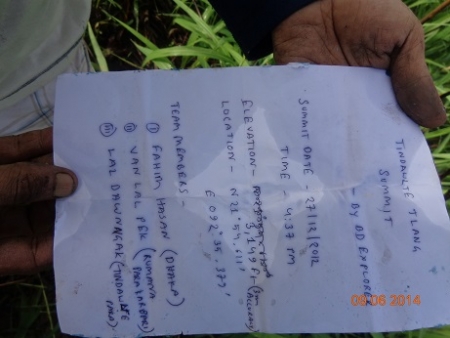 TINDAULTE TLANG
SUMMIT
- BY BD EXPLORER
SUMMIT DATE - 27/12/2012
TIME - 4:37 PM
ELEVATION -
3,149 Ft (3m Accuracy)
LOCATION - N 21° 54.111'
E 092° 35.
TEAM MEMBERS -
(i) FAHIM HASAN (DHAKA)
(ii) VAN LAL PEN (RUMANA PARA
(iii) LAL DAWN NGAK (TINDAULTE PARA)
09.06 2014